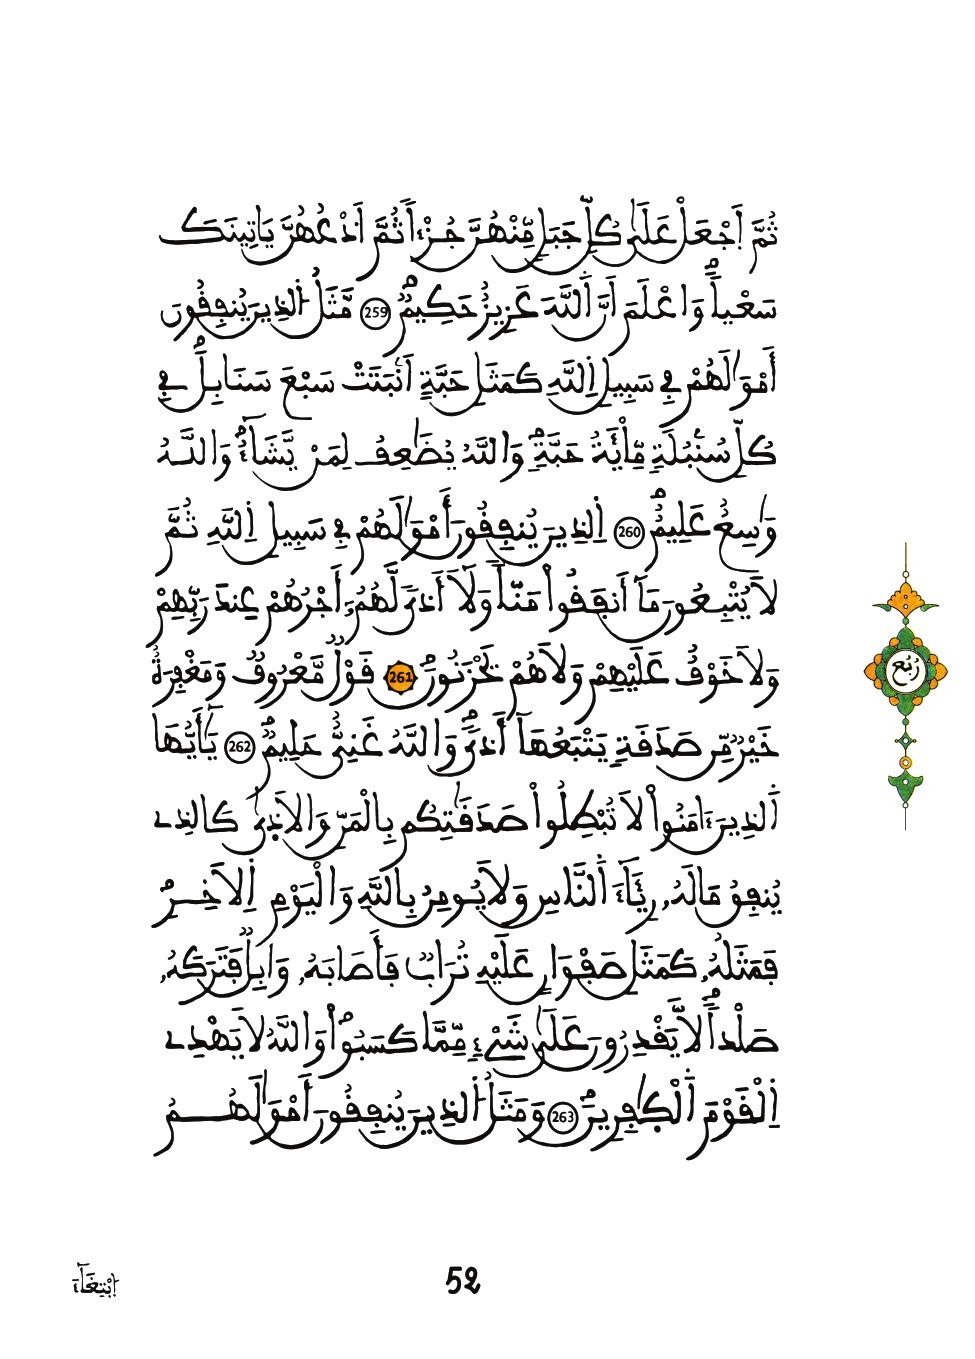 ثُمَّ اَجْعَلْ عَلَىٰ كُلِّ جَبَلٍ مِّنْهُنَّ جُزْءاً ثُمَّ اَدْعُهُنَّ يَاتِينَكَ
سَعْياًۖ وَاعْلَمَ اَنَّ اَللَّهَ عَزِيزٌ حَكِيمٌۖ 259 مَّثَلُ اُلذِينَ يُنفِقُونَ
أَمْوَٰلَهُمْ فِي سَبِيلِ اِللَّهِ كَمَثَلِ حَبَّةٍ اَنۢبَتَتْ سَبْعَ سَنَابِلَۖ فِي
كُلِّ سُنۢبُلَةٖ مِّاْئَةُ حَبَّةٖۖ وَاللَّهُ يُضَٰعِفُ لِمَنْ يَّشَآءُۖ وَاللَّهُ
وَٰسِعٌ عَلِيمٌۖ 260 اِلذِينَ يُنفِقُونَ أَمْوَٰلَهُمْ فِي سَبِيلِ اِللَّهِ ثُمَّ
لَا يُتْبِعُونَ مَآ أَنفَقُواْ مَنّاٗ وَلَآ أَذىٗ لَّهُمُۥٓ أَجْرُهُمْ عِندَ رَبِّهِمْ
وَلَا خَوْفٌ عَلَيْهِمْ وَلَا هُمْ يَحْزَنُونَۖ 261 قَوْلٞ مَّعْرُوفٞ وَمَغْفِرَةٌ
خَيْرٞ مِّن صَدَقَةٖ يَتْبَعُهَآ أَذىٗۖ وَاللَّهُ غَنِيٌّ حَلِيمٞۖ 262 يَٰٓأَيُّهَا
اَلذِينَ ءَامَنُواْ لَا تُبْطِلُواْ صَدَقَٰتِكُم بِالْمَنِّ وَالَاذ۪يٰ كَالذِے
يُنفِقُ مَالَهُۥ رِئَآءَ اَلنَّاسِ وَلَا يُومِنُ بِاللَّهِ وَالْيَوْمِ اِلَاخِرِ
فَمَثَلُهُۥ كَمَثَلِ صَفْوَانٍ عَلَيْهِ تُرَابٞ فَأَصَابَهُۥ وَابِلٞ فَتَرَكَهُۥ
صَلْداٗۖ لَّا يَقْدِرُونَ عَلَىٰ شَےْءٖ مِّمَّا كَسَبُواْۖ وَاللَّهُ لَا يَهْدِے
اِلْقَوْمَ اَلْكٰ۪فِرِينَۖ 263 وَمَثَلُ اُلذِينَ يُنفِقُونَ أَمْوَٰلَهُمُ
رُبُع
اِبْتِغَآءَ
52